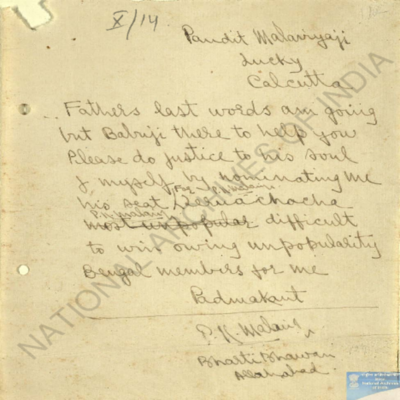 X/14
Pandit Malaviyaji
Lucky
Calcutta
Fathers last words am going
but Babuji there to help you
Please do justice to his soul
& myself by nominating me
his seat chacha
most unpopular difficult
to win owing unpopularity
Bengal members for me
Padmakant
P. K. Malaviya
Bharti Bhawan
Allahabad
NATIONAL ARCHIVES OF INDIA